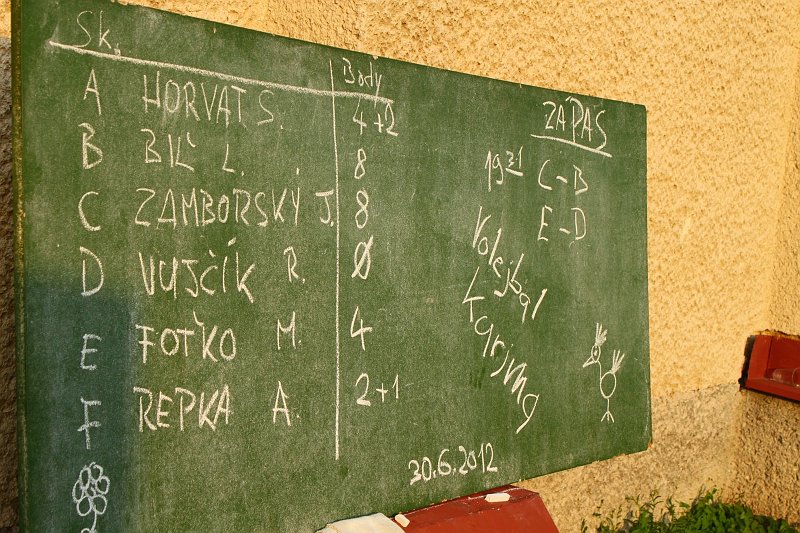 Sk. Body
A HORVAT S. 4+2
B BIĽ L. 8
C ZÁMBORSKÝ J. 8
D VUJČÍK R. Ø
E FOŤKO M. 4
F REPKA A. 2+1
ZÁPAS
19 31 C-B
E-D
Volejbal
30.6.2012